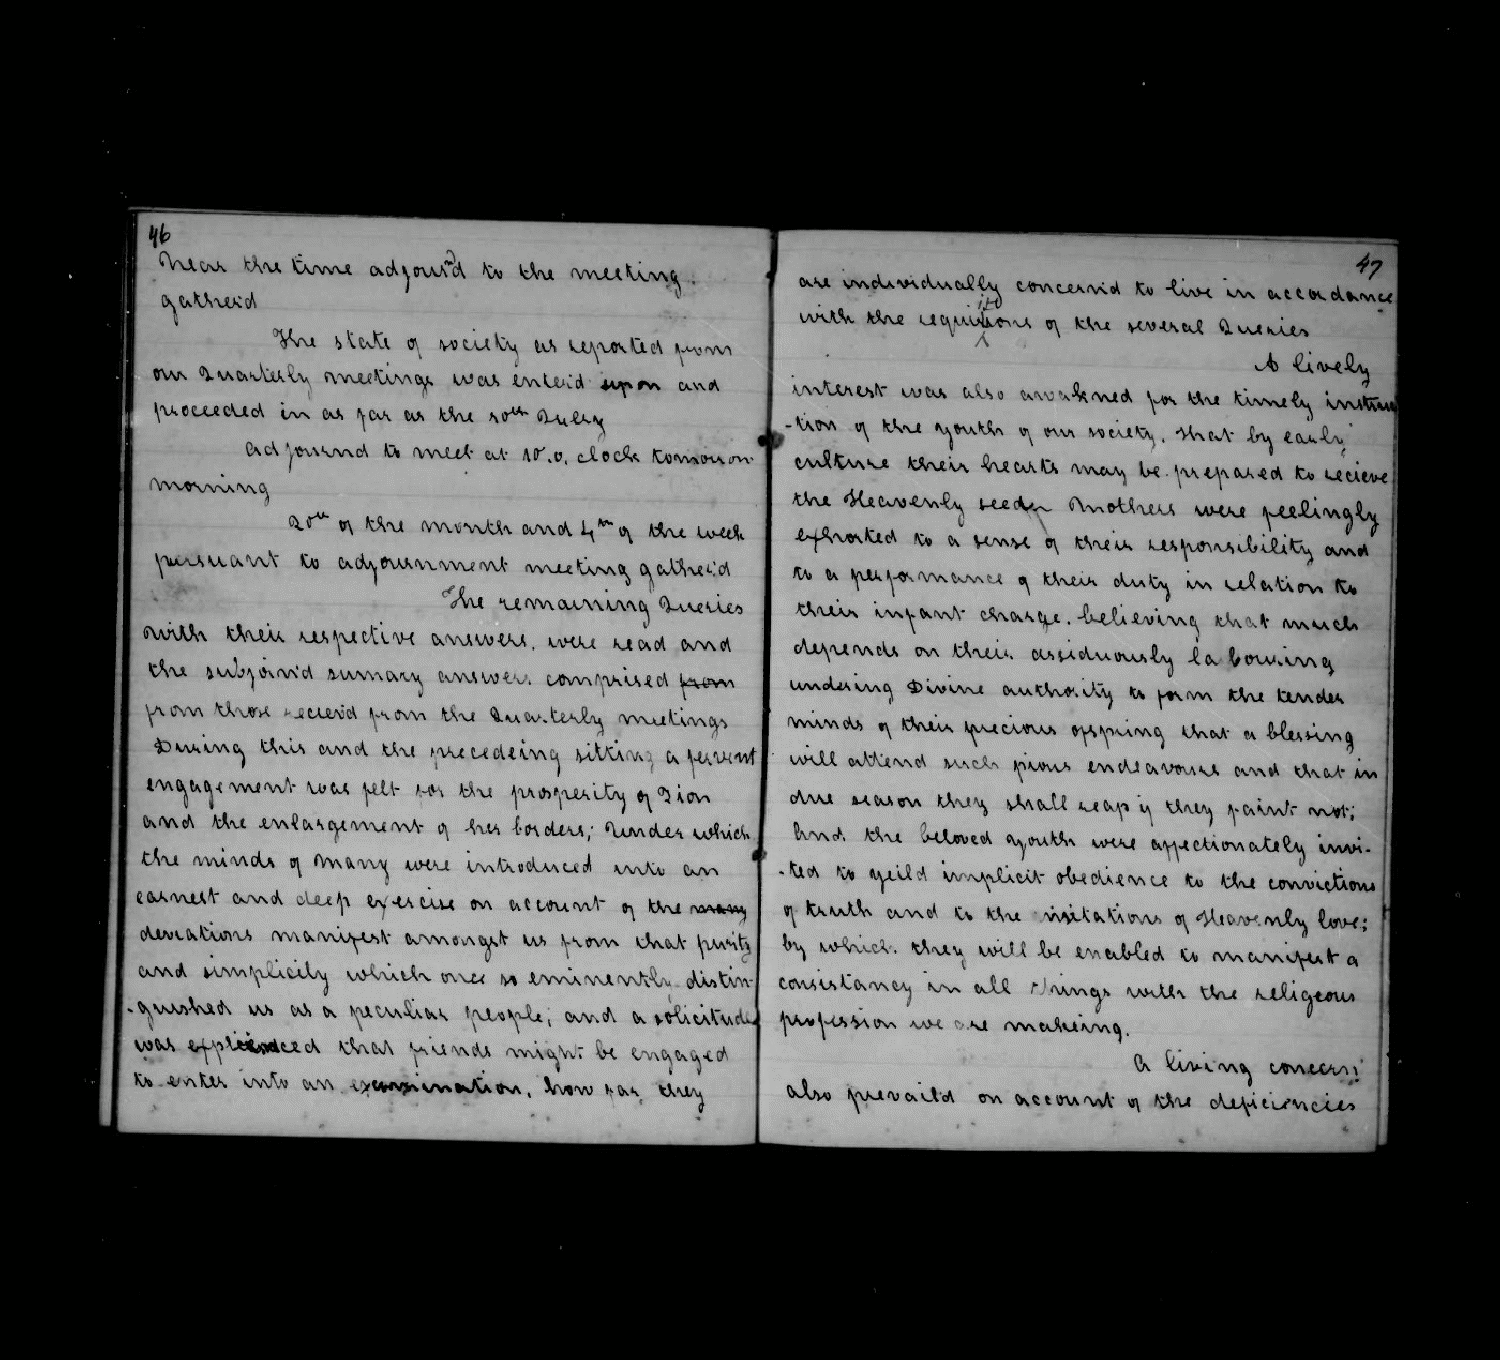 46
Near the time adjourn'd to the meeting
gather'd
The state of society as reported from
our Quarterly meetings was enter'd upon and
proceeded in as far as the 10th Query
adjournd to meet at 10. o, clock tomorrow
morning
20th of the month and 4th of the week
pursuant to adjournment meeting gather'd
The remaining Queries
with their respective answers, were read and
the subjoin'd sumary answers comprised from
from those reciev'd from the Quarterly meetings
During this and the precedeing sitting a fervent
engagement was felt for the prosperity of Zion
and the enlargement of her borders; Under which
the minds of many were introduced into an
earnest and deep exercise on account of the many
deviations manifest amongst us from that purity
and simplicity which once so eminently distin-
-guished us as a peculiar people; and a solicitude
was that friends might be engaged
to enter into an examination, how far they
47
are individually concern'd to live in accordance
with the requisitions of the several Queries
A lively
interest was also awakned for the timely instruc
-tion of the youth of our society, that by early
culture their hearts may be prepared to recieve
the Heavenly seed Mothers were feelingly
exhorted to a sense of their responsibility and
to a performance of their duty in relation to
their infant charge. believing that much
depends on their assiduously labouring
undering Divine authority to form the tender
minds of their precious ofspring that a blessing
will attend such pious endeavours and that in
due season they shall reap if they faint not;
And the beloved youth were affectionately invi-
-ted to yeild implicit obedience to the convictions
of truth and to the visitations of Heavenly love;
by which they will be enabled to manifest a
consistancy in all things with the religeous
profession we are makeing.
A living concern
also prevail'd on account of the deficiencies